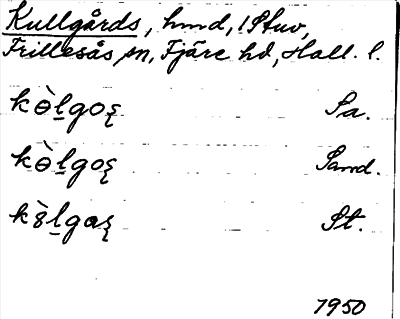 Kullgårds, hmd, 1 Stuv,
Frillesås sn, Fjäre hd, Hall. l.
kɵ̀l̠goʂ Sa.
kɵ̀l̠goʂ Sand.
St.
1950